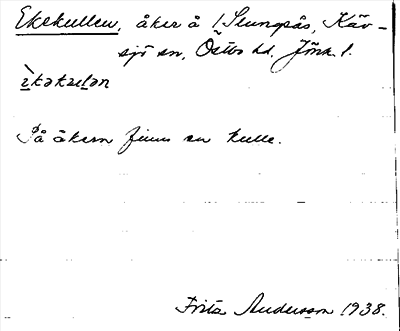 Ekekullen, åker å 1 Slungsås, Käv-
sjö sn, Östbo hd. Jönk. l.
På åkern finns en kulle.
Frits Andersson 1938.